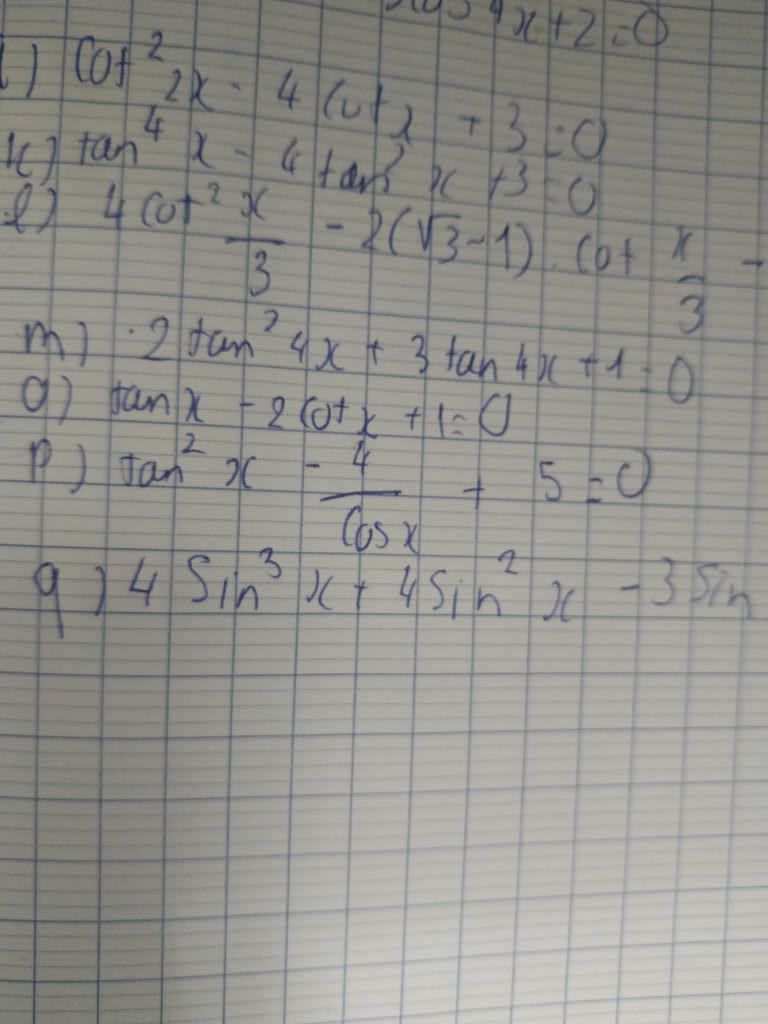 4x + 2 = 0
cot² 2x - 4 cot x + 3 = 0
k) tan⁴ x - 4 tan² x + 3 = 0
l) 4 cot² x/3 - 2(√3 - 1). cot x/3 -
m) 2 tan² 4x + 3 tan 4x + 1 = 0
o) tan x - 2 cot x + 1 = 0
p) tan² x - 4/cos x + 5 = 0
q) 4 sin³ x + 4 sin² x - 3 sin